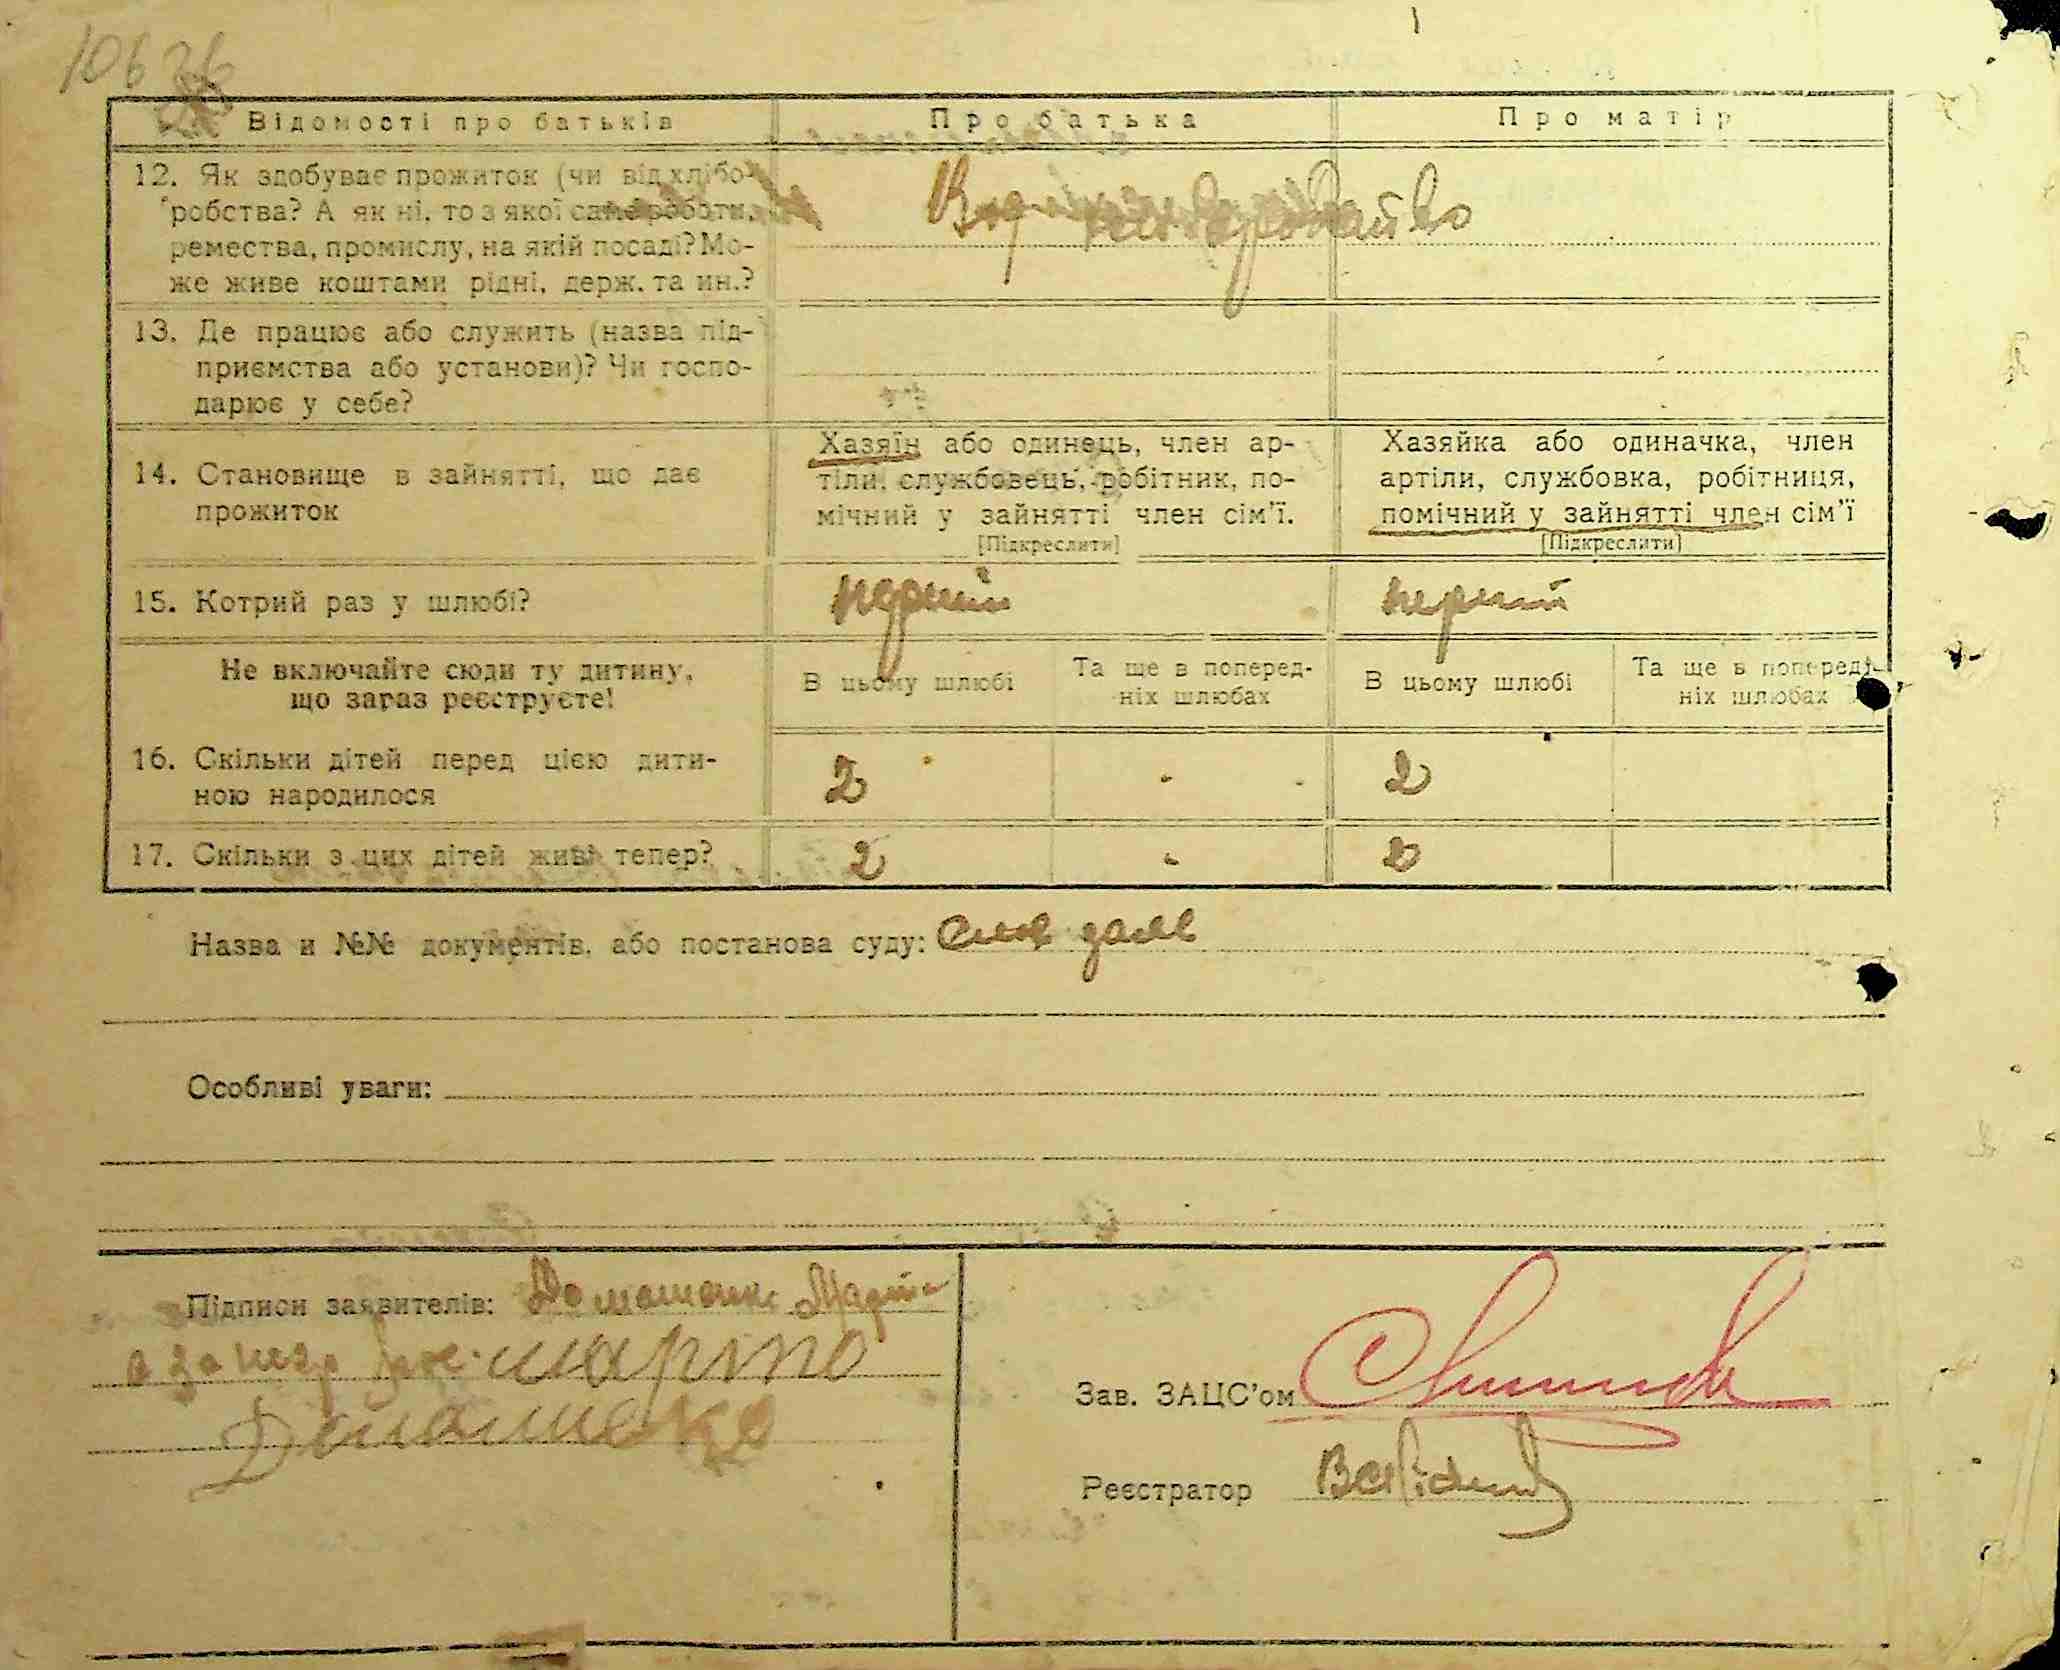 10626
Відомості про батьків
Про батька
Про матір
12. Як здобуває прожиток (чи від хлібо-
робства? А як ні, то з якої саме роботи,
ремества, промислу, на якій посаді? Мо-
же живе коштами рідні, держ. та ин.?
13. Де працює або служить (назва під-
приємства або установи)? Чи госпо-
дарює у себе?
14. Становище в зайнятті, що дає
прожиток
Хазяїн або одинець, член ар-
тіли, службовець, робітник, по-
мічний у зайнятті член сім'ї.
[Підкреслити]
Хазяйка або одиначка, член
артіли, службовка, робітниця,
помічний у зайнятті член сім'ї
[Підкреслити]
15. Котрий раз у шлюбі?
перший
перший
Не включайте сюди ту дитину,
що зараз реєструєте!
В цьому шлюбі
Та ще в поперед-
ніх шлюбах
В цьому шлюбі
Та ще в поперед-
ніх шлюбах
16. Скільки дітей перед цією дити-
ною народилося
2
-
2
17. Скільки з цих дітей живі тепер?
2
-
2
Назва и №№ документів, або постанова суду:
Особливі уваги:
Підписи заявителів:
Зав. ЗАЦС'ом
Реєстратор